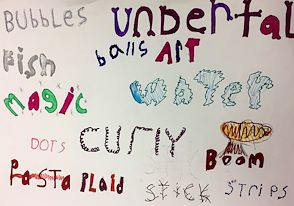 BUBBLES UNDERTAL
balls ART
Fish
magic WATER
DOTS CURlY BOOM
Pasta Plaid STICK STRIPS